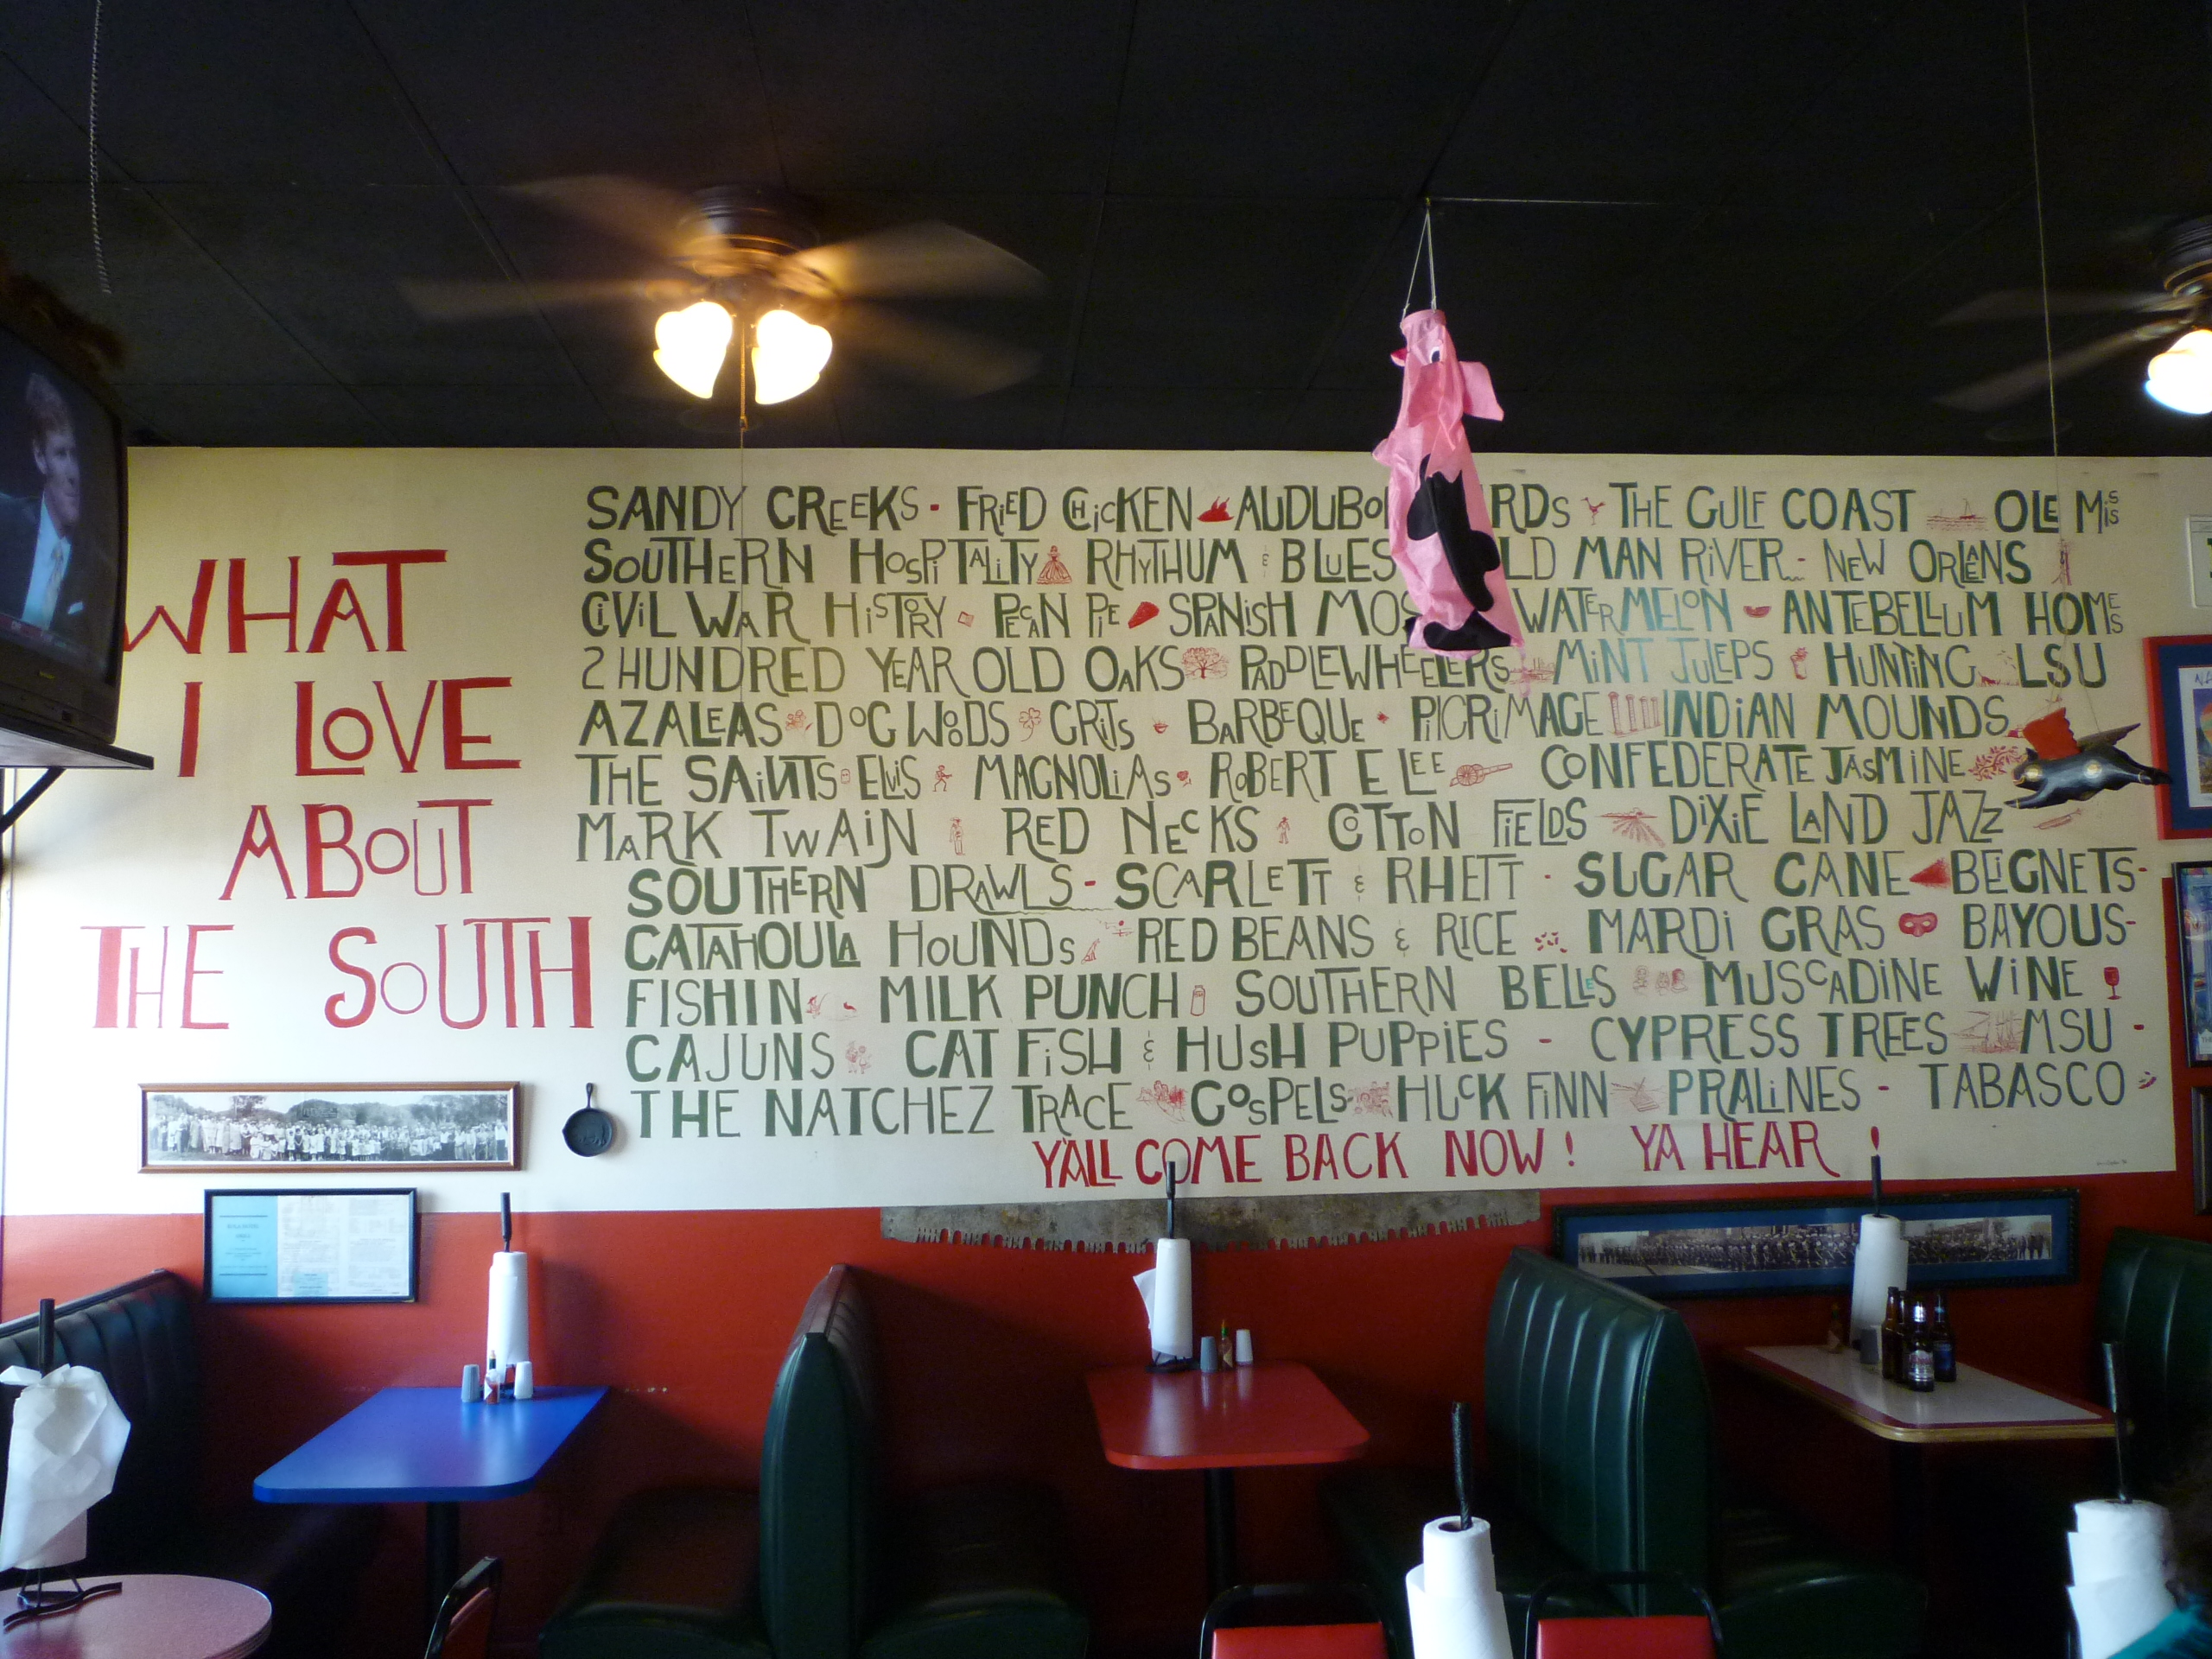 WHAT
I LOVE
ABOUT
THE SOUTH
SANDY CREEKS - FRIED CHICKEN AUDUBO RDS THE GULF COAST OLE MISS
SOUTHERN HOSPITALITY RHYTHUM & BLUES LD MAN RIVER - NEW ORLEANS
CIVIL WAR HISTORY PECAN PIE SPANISH MOS WATERMELON ANTEBELLUM HOMES
2 HUNDRED YEAR OLD OAKS PADDLEWHEELERS MINT JULEPS HUNTING LSU
AZALEAS DOGWOODS GRITS BARBEQUE PILGRIMAGE INDIAN MOUNDS
THE SAINTS ELVIS MAGNOLIAS ROBERT E LEE CONFEDERATE JASMINE
MARK TWAIN RED NECKS COTTON FIELDS DIXIE LAND JAZZ
SOUTHERN DRAWLS - SCARLETT & RHETT - SUGAR CANE BEIGNETS -
CATAHOULA HOUNDS RED BEANS & RICE MARDI GRAS BAYOUS -
FISHIN MILK PUNCH SOUTHERN BELLES MUSCADINE WINE
CAJUNS CAT FISH & HUSH PUPPIES - CYPRESS TREES MSU -
THE NATCHEZ TRACE GOSPELS HUCK FINN PRALINES - TABASCO
Y'ALL COME BACK NOW! YA HEAR!